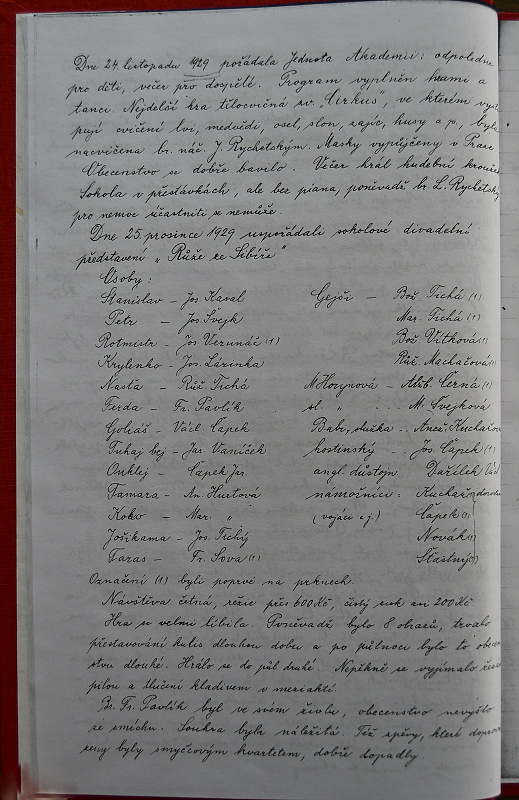 Dne 24. listopadu 1929 pořádala Jednota Akademii: odpoledne
pro děti, večer pro dospělé. Program vyplněn hrami a
tanci. Nejdelší hra tělocvičná zv. "Cirkus", ve kterém vystu
pují cvičení lvi, medvědi, osel, slon, zajíc, husy a p., byla
nacvičena br. náč. J. Rychetským. Masky vypůjčeny v Praze
Obecenstvo se dobře bavilo. Večer hrál hudební kroužek
Sokola v přestávkách, ale bez piana, poněvadž br. L. Rychetský
pro nemoc účastniti se nemůže.
Dne 25. prosince 1929 uspořádali sokolové divadelní
představení "Růže ze Sibíře"
Osoby:
Stanislav – Jos Kasal Gejši – Bož. Tichá (1)
Petr – Jos Švejk Mar. Tichá (1)
Rotmistr – Jos Verunáč (1) Bož. Vítková (1)
Krylenko – Jos. Lázinka Růž. Machačová (1)
Nasťa – Růž. Tichá Alžb. Černá (1)
Ferda – Fr. Pavlík sl. " ... M. Švejková
Goliáš – Václ. Čapek Babi, služka .. Anež. Kuchařová
Tuhaj bej – Jar. Vaníček hostinský – Jos. Čapek (1)
Onklej – Čapek Jar. angl. důstojn. Dařílek Václ
Tamara – An. Hurtová námořníci: Kuchař
Koko – Mar. " (vojáci a j.) Čapek (1)
Jošikama – Jos. Tichý Novák (1)
Taras – Fr. Sova (1) Šťastný (1)
Označení (1) byli poprvé na prknech.
Návštěva četná, režie přes 600 Kč, čistý zisk asi 200 Kč
Hra se velmi líbila. Poněvadž bylo 8 obrazů, trvalo
přestavování kulis dlouhou dobu a po půlnoci bylo to obecen
stvu dlouhé. Hrálo se do půl druhé. Nepěkně se vyjímalo řezání
pilou a tlučení kladivem v meziaktí.
Br. Fr. Pavlík byl ve svém živlu, obecenstvo nevyšlo
ze smíchu. Souhra byla náležitá. Též zpěvy, které doprová
zeny byly smyčcovým kvartetem, dobře dopadly.